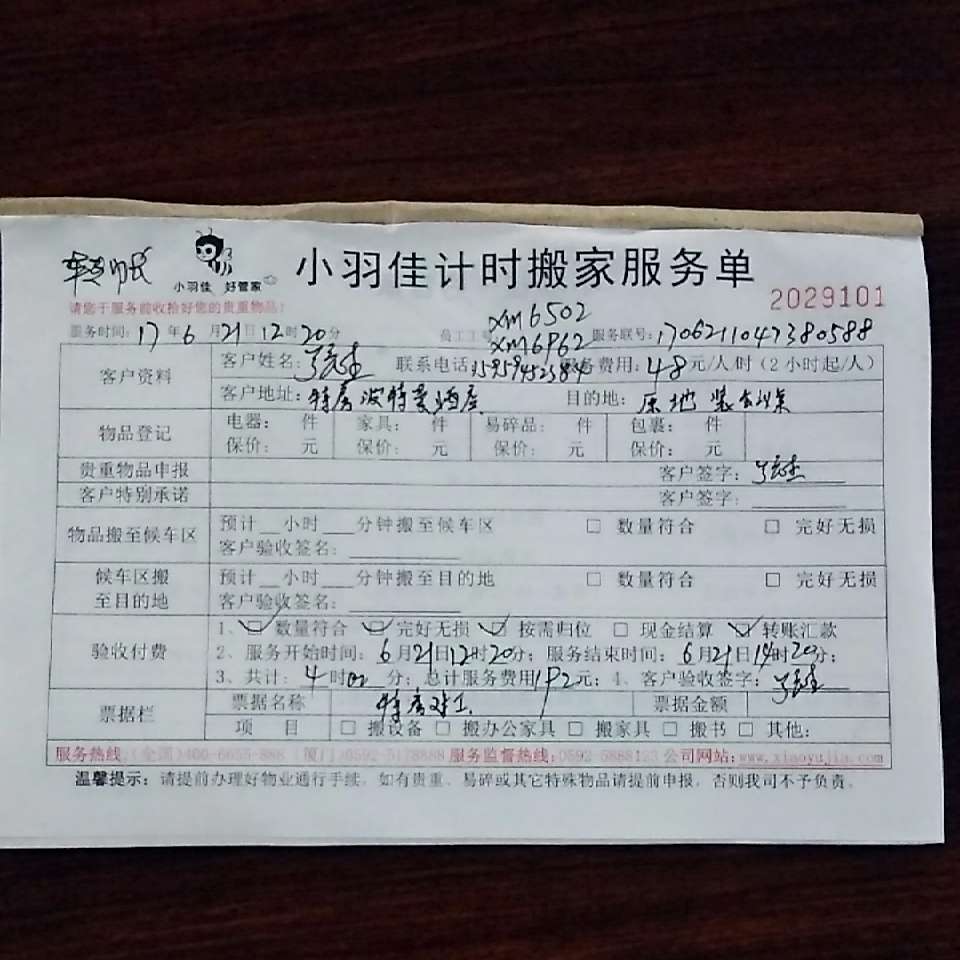 转帐
小羽佳 好管家
小羽佳计时搬家服务单
2029101
请您于服务前收拾好您的贵重物品!
服务时间: 17 年 6 月 21 日 12 时 20 分 员工工号 xm6502 xm6962 服务联号: 170621104738 0588
客户资料 客户姓名: 联系电话: 15959452584 服务费用: 48 元/人/时 (2小时起/人)
客户地址: 特房波特曼酒店 目的地: 原地装
物品登记 电器: 件 家具: 件 易碎品: 件 包裹: 件
保价: 元 保价: 元 保价: 元 保价: 元
贵重物品申报 客户签字:
客户特别承诺 客户签字:
物品搬至候车区 预计__小时___分钟搬至候车区 □ 数量符合 □ 完好无损
客户验收签名:
候车区搬至目的地 预计__小时___分钟搬至目的地 □ 数量符合 □ 完好无损
客户验收签名:
验收付费 1、☑ 数量符合 ☑ 完好无损 ☑ 按需归位 □ 现金结算 ☑ 转账汇款
2、服务开始时间: 6月21日12时20分; 服务结束时间: 6月21日14时20分;
3、共计: 4 时 00 分; 总计服务费用192元; 4、客户验收签字:
票据栏 票据名称 特房 票据金额
项 目 □ 搬设备 □ 搬办公家具 □ 搬家具 □ 搬书 □ 其他:
服务热线: (全国)400-6655-888 (厦门)0592-5178888 服务监督热线: 0592-5888123 公司网站: www.xiaoyujia.com
温馨提示: 请提前办理好物业通行手续, 如有贵重、易碎或其它特殊物品请提前申报, 否则我司不予负责。